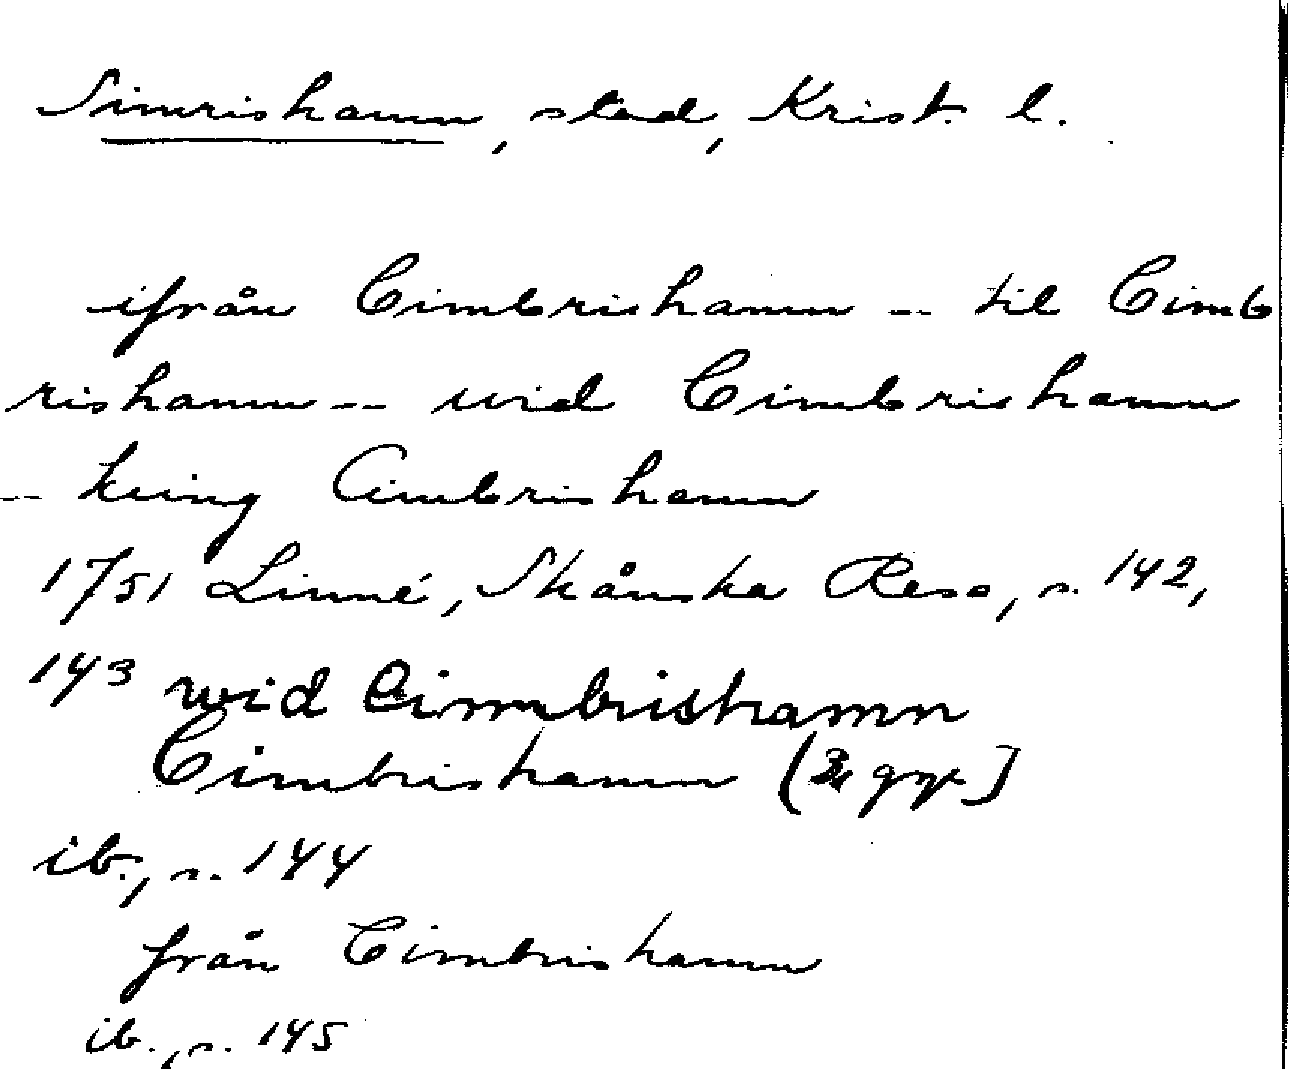 Simrishamn, stad, Krist. l.
ifrån Cimbrishamn -- til Cimb
rishamn -- wid Cimbrishamn
-- kring Cimbrishamn
1751 Linné, Skånska Resa, s. 142,
143 wid Cimbrishamn
Cimbrishamn ( ggr]
ib., s. 144
från Cimbrishamn
ib., s. 145